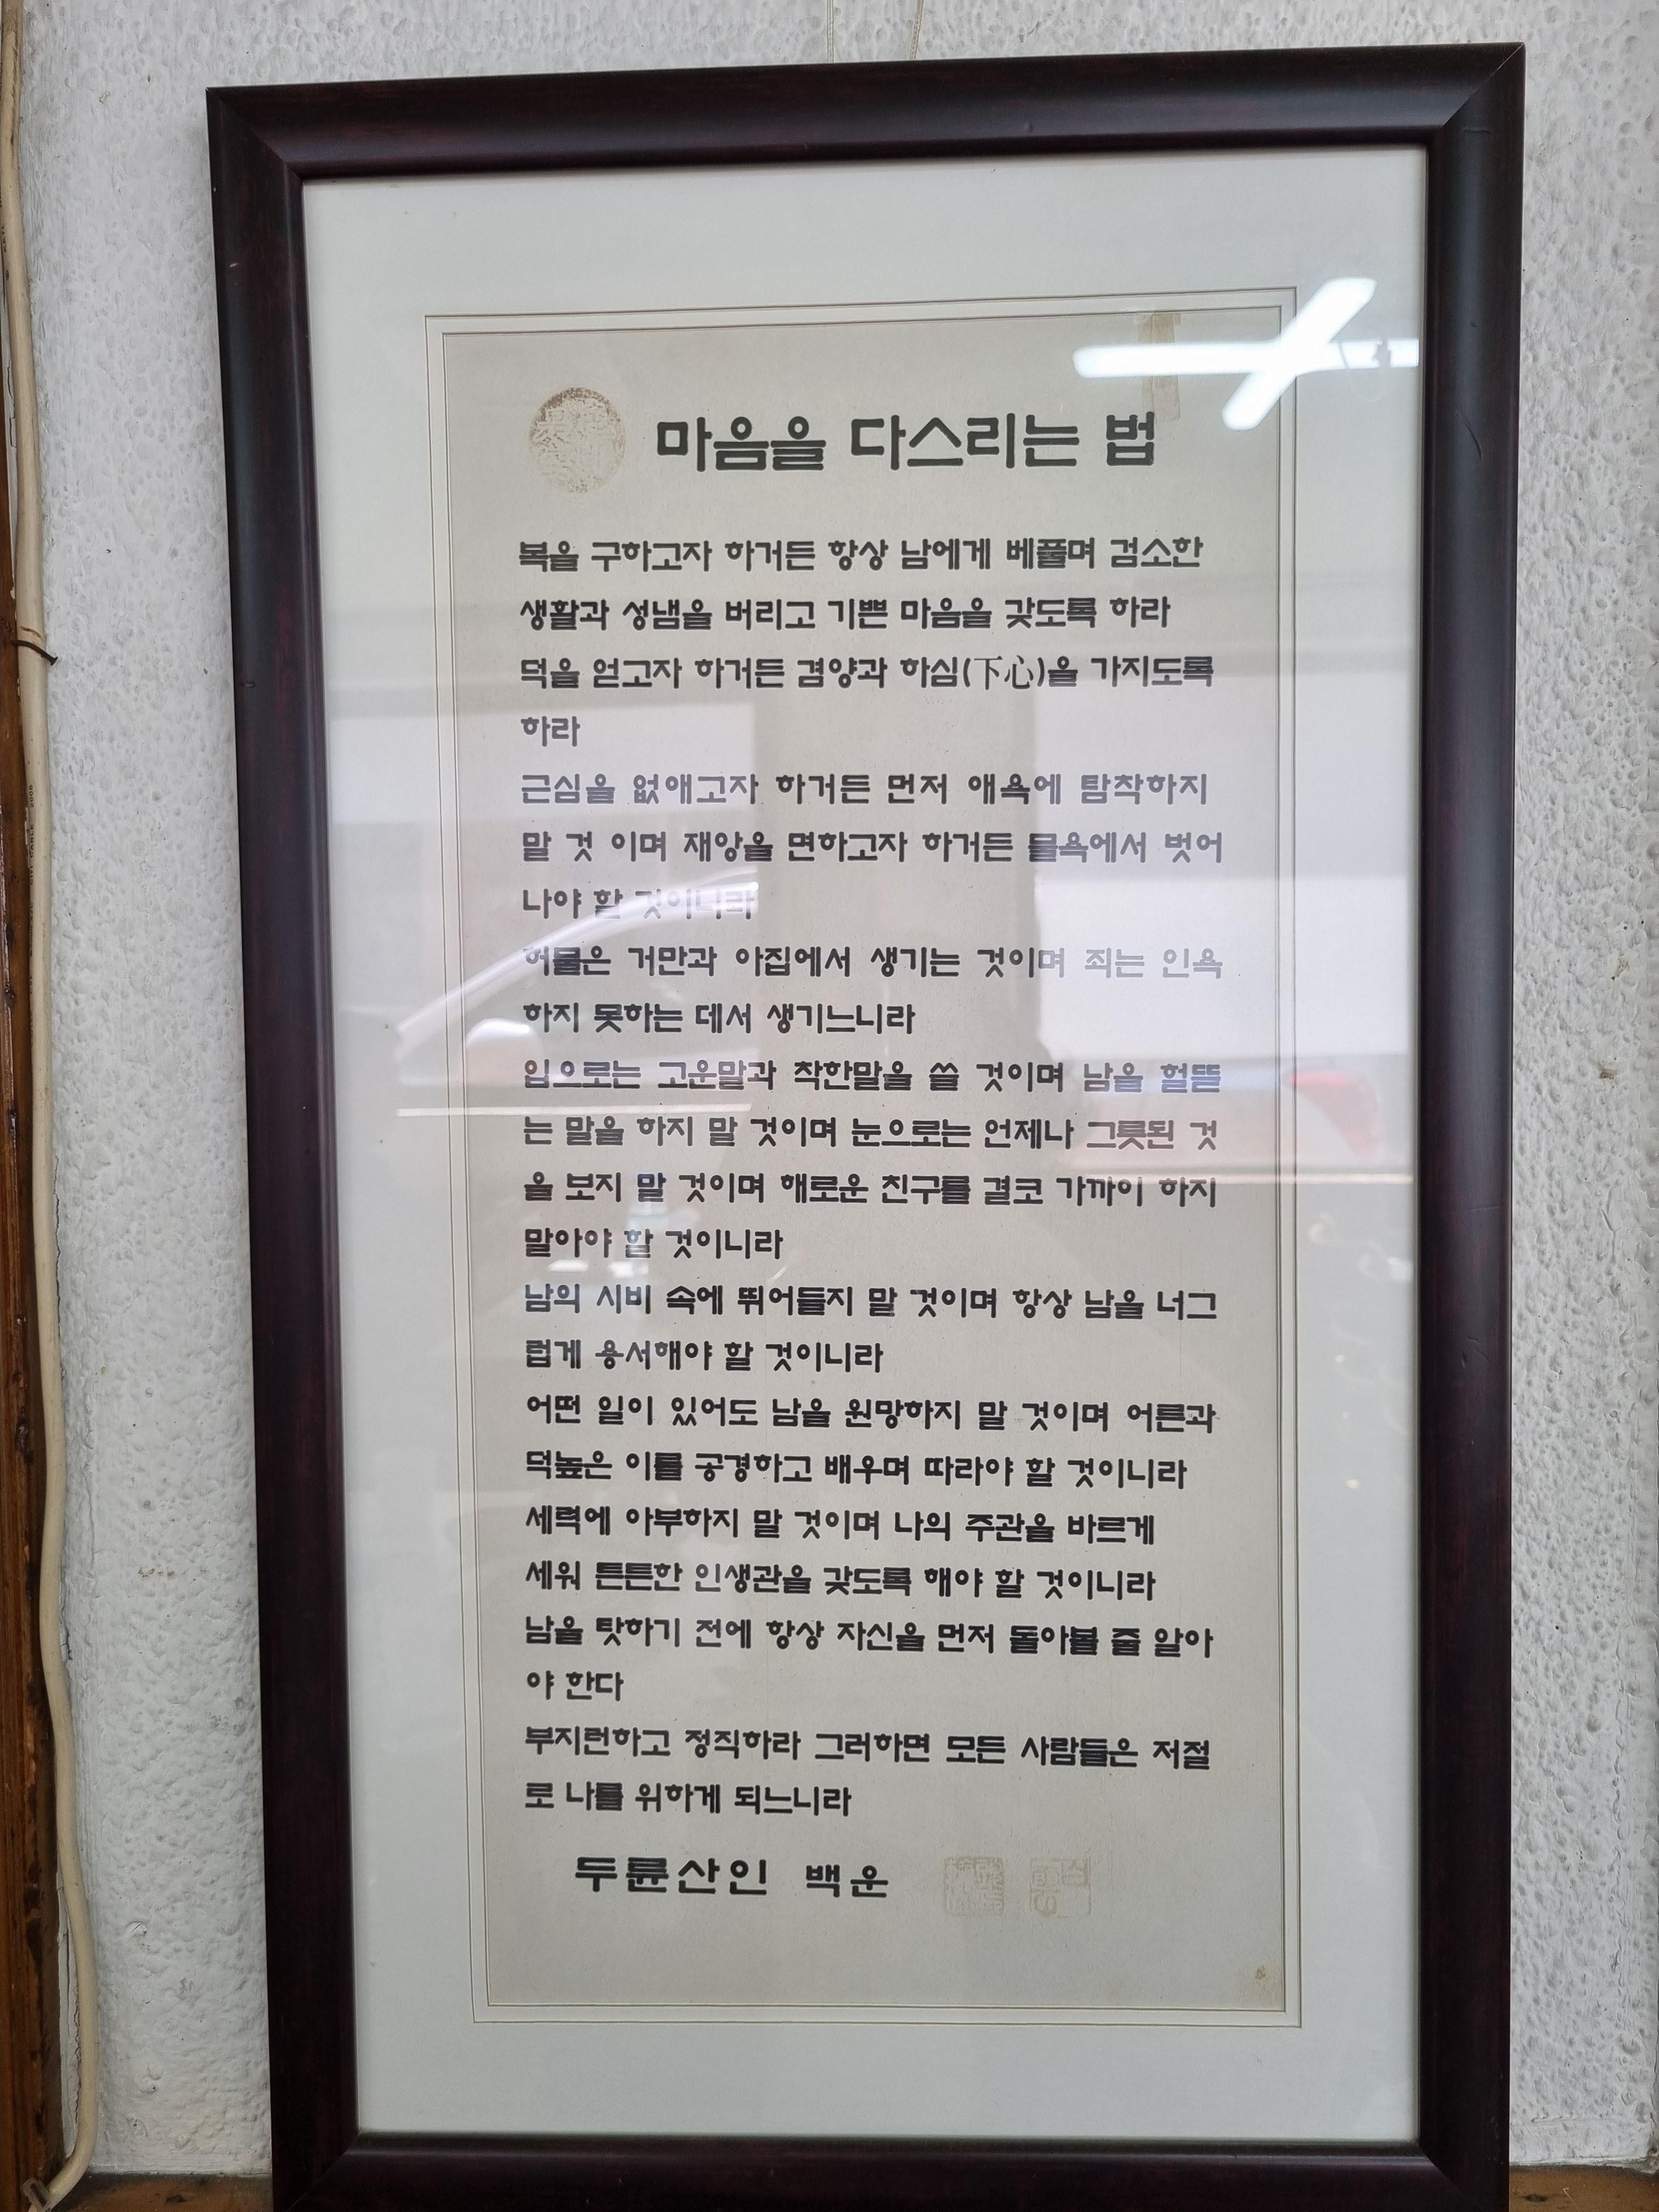 마음을 다스리는 법
복을 구하고자 하거든 항상 남에게 베풀며 검소한
생활과 성냄을 버리고 기쁜 마음을 갖도록 하라
덕을 얻고자 하거든 겸양과 하심(下心)을 가지도록
하라
근심을 없애고자 하거든 먼저 애욕에 탐착하지
말 것 이며 재앙을 면하고자 하거든 물욕에서 벗어
나야 할 것이니라
허물은 거만과 아집에서 생기는 것이며 죄는 인욕
하지 못하는 데서 생기느니라
입으로는 고운말과 착한말을 쓸 것이며 남을 헐뜯
는 말을 하지 말 것이며 눈으로는 언제나 그릇된 것
을 보지 말 것이며 해로운 친구를 결코 가까이 하지
말아야 할 것이니라
남의 시비 속에 뛰어들지 말 것이며 항상 남을 너그
럽게 용서해야 할 것이니라
어떤 일이 있어도 남을 원망하지 말 것이며 어른과
덕높은 이를 공경하고 배우며 따라야 할 것이니라
세력에 아부하지 말 것이며 나의 주관을 바르게
세워 튼튼한 인생관을 갖도록 해야 할 것이니라
남을 탓하기 전에 항상 자신을 먼저 돌아볼 줄 알아
야 한다
부지런하고 정직하라 그러하면 모든 사람들은 저절
로 나를 위하게 되느니라
두륜산인 백운